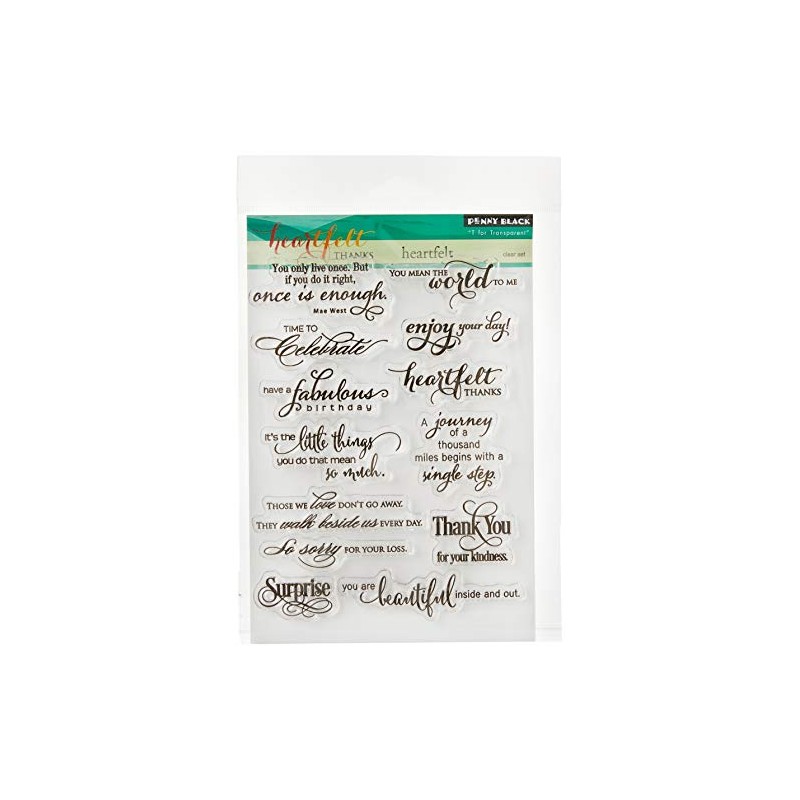 PENNY BLACK
"T for Transparent"
heartfelt
THANKS
heartfelt
clear set
You only live once. But
if you do it right,
once is enough.
Mae West
YOU MEAN THE world TO ME
TIME TO
Celebrate
enjoy your day!
have a fabulous
birthday
heartfelt
THANKS
it's the little things
you do that mean
so much.
A journey
of a
thousand
miles begins with a
single step.
THOSE WE love DON'T GO AWAY.
THEY walk beside us EVERY DAY.
So sorry FOR YOUR LOSS.
Thank You
for your kindness.
Surprise
you are beautiful inside and out.